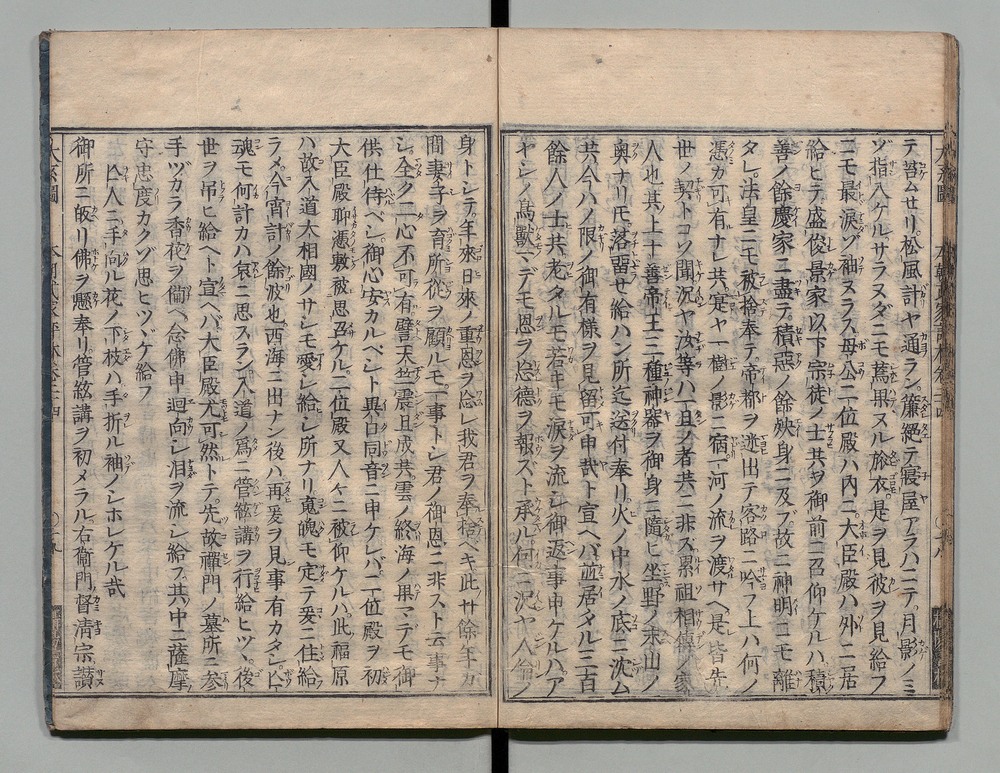 テ苔ムセリ。松風計ヤ通ラン。簾絶テ寝屋アラハニテ。月影ノミ
ゾ指入ケルサラヌダニモ萬里ヲ見彼ヲ見給フ
ニモ最涙ゾ袖ヌラス。母公二位殿ハ内ニ。大臣殿ハ外ニ居
給ヒテ盛俊景家以下宗徒ノ士共ヲ御前ニ召仰ケルハ。積
善ノ餘慶家ニ盡テ。積惡ノ餘殃身ニ及ブ。故ニ神明ニモ離
タレ。法皇ニモ被捨奉テ。帝都ヲ迷出テ客路ニ吟フ上ハ何ノ
憑カ可有ナレ共定ヤ一樹ノ影ニ宿一河ノ流ヲ渡サヘ是皆先
世ノ契トコソ聞況ヤ汝等ハ一旦ノ者共ニ非ズ。累祖相傳ノ家
人也其上十善帝王三種神器ヲ御身ニ隨ヒ坐野ノ末山ノ
奥ナリ圧落留セ給ハン所迄送付奉リ火ノ中水ノ底ニ沈ム
共今ハノ限ノ御有様ヲ見留可申哉ト宣ヘバ並居タル三百
餘人ノ士共老タルモ若キモ涙ヲ流シ御返事申ケルハア
ヤシノ鳥獣マデモ恩ヲ忘德ヲ報ズト承ル何ニ況ヤ人倫ノ
身トシテ。年來日來ノ重恩ヲ忘レ我君ヲ奉捨ベキ此廿餘年ガ
間妻子ヲ育所從ヲ顧ルモ一事トシ君ノ御恩ニ非スト云事ナ
シ。全ク二心不可有譬天竺震旦成共雲ノ終海ノ果マデモ御
供仕侍ベシ。御心安カルベシト異口同音ニ申ケレバ二位殿ヲ初
大臣殿聊憑敷被思召ケル。二位殿又人々ニ被仰ケルハ此福原
ハ故入道大相國ノサシモ愛シ給シ所ナリ。魂魄モ定テ爰ニ住給
ラメ今宵計ノ餘波也西海ニ出ナン後ハ再爰ヲ見事有カタシ。
魂モ何計カハ哀ニ思スラン入道ノ爲ニ管絃講ヲ行給ヒツヽ。後
世ヲ吊ヒ給ヘト宣ヘバ大臣殿尤可然トテ。先故禪門ノ墓所ニ参
手ヅカラ香花ヲ備ヘ念佛申迴向シ泪ヲ流シ給フ。其中ニ薩摩
守忠度カクゾ思ヒツヾケ給フ
人ニ手向ル花ノ下枝ハ手折ル袖ノシホレケル哉
御所ニ皈リ佛ヲ懸奉リ管絃講ヲ初メラル右衛門督清宗讃